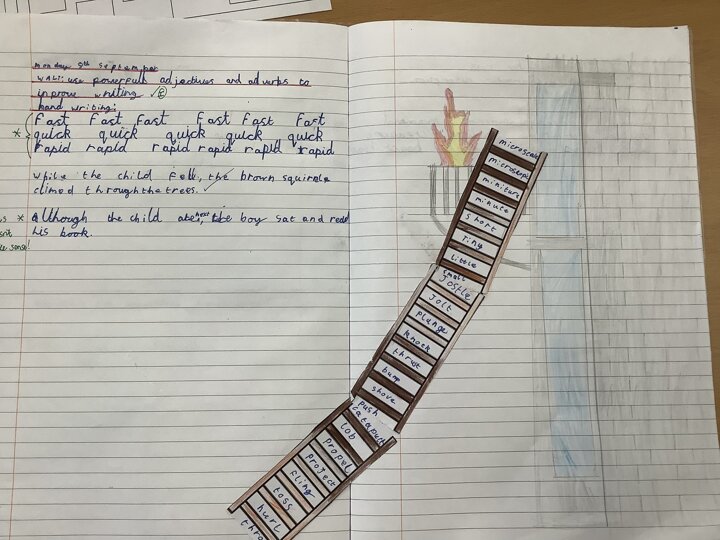 monday 9th september
WALI: use powerfull adjectives and adverbs to
inprove writing
hand writing:
Fast Fast Fast Fast Fast Fast
* quick quick quick quick quick
rapid rapid rapid rapid rapid rapid
While the child fell, the brown squirele
climed through the trees.
* although the child ate, next the boy sat and
his book.
microscopic
miniture
minute
short
tiny
little
small
jostle
jolt
plunge
knock
thrust
bump
shove
push
catapult
lob
propel
project
fling
toss
hurl
thro